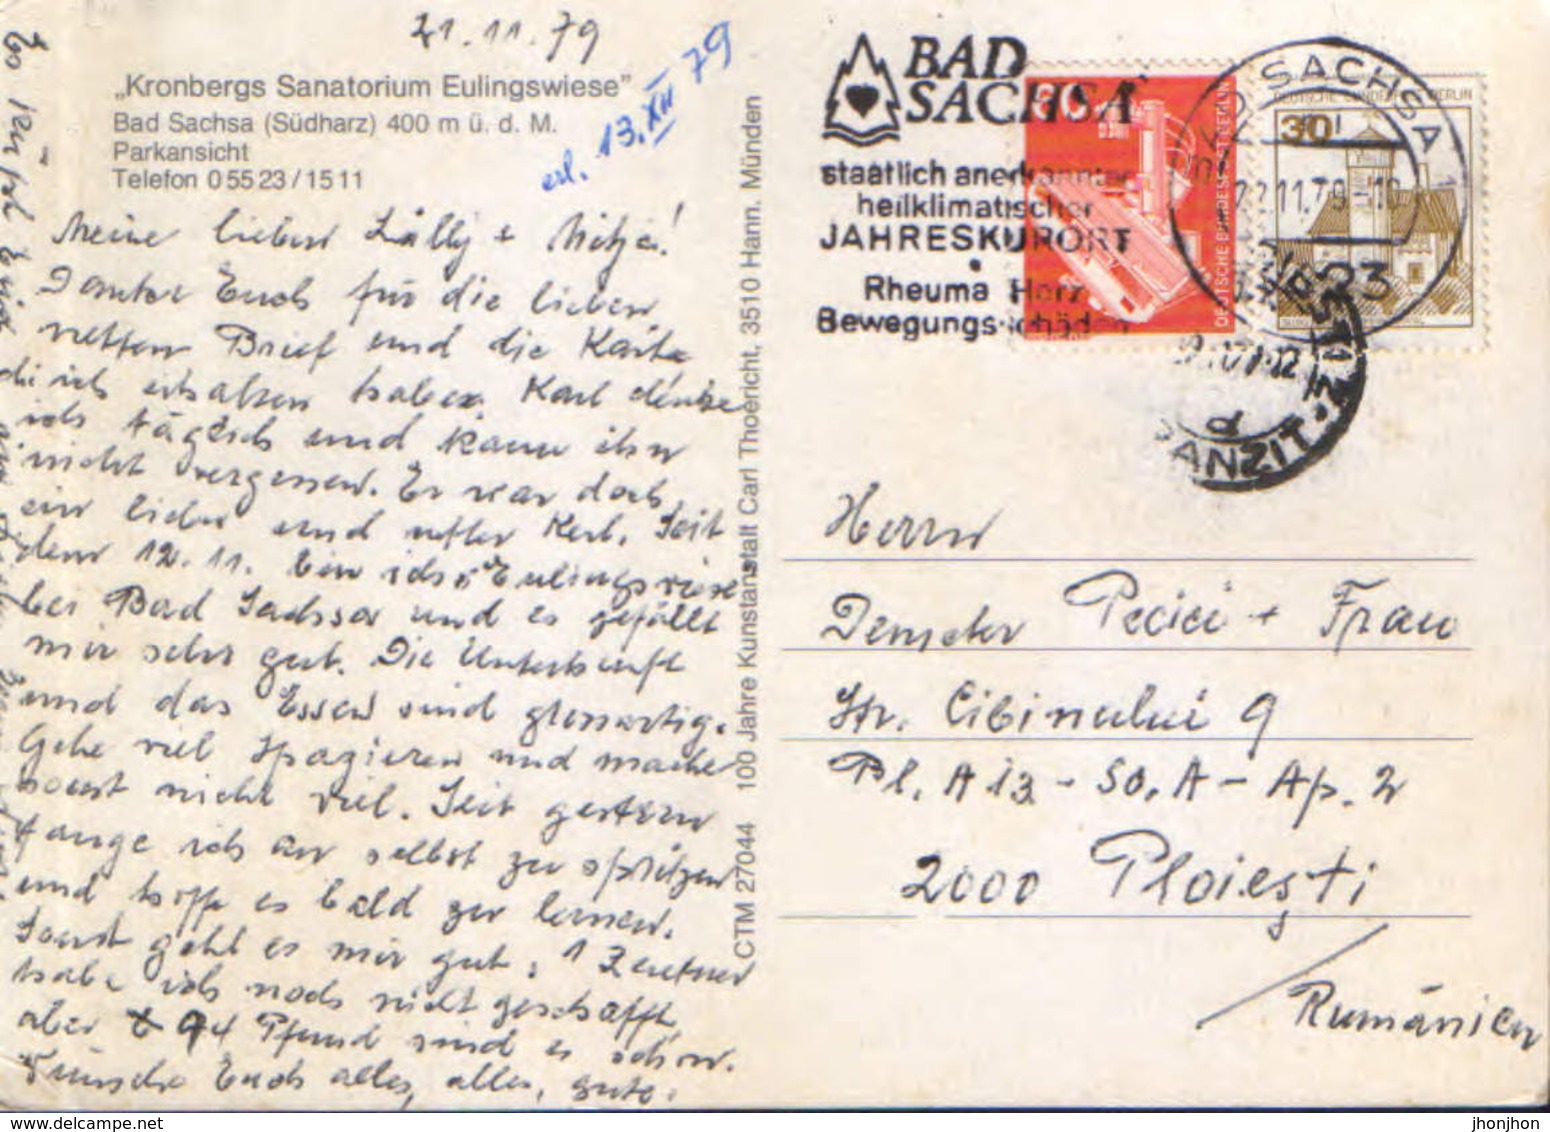 21.11.79
erl. 13.XII 79
„Kronbergs Sanatorium Eulingswiese”
Bad Sachsa (Südharz) 400 m ü. d. M.
Parkansicht
Telefon 0 55 23 / 15 11
Meine lieben Lilly + Mitja!
Danke Euch für die lieben
netten Brief und die Karte
die ich erhalten habe. Karl denke
ich täglich und kann ihn
nicht vergessen. Er war doch
ein lieber und netter Kerl. Seit
dem 12.11. bin ich "Eulingswiese"
bei Bad Sachsa und es gefällt
mir sehr gut. Die Unterkunft
und das Essen sind grossartig.
Gehe viel spazieren und mache
sonst nicht viel. Seit gestern
fange ich an selbst zu spritzen
und hoffe es bald zu lernen.
Sonst geht es mir gut, 1 Zentner
habe ich noch nicht geschafft,
aber 94 Pfund sind es schon.
Wünsche Euch alles, alles, gute.
CTM 27044 100 Jahre Kunstanstalt Carl Thoericht, 3510 Hann. Münden
BAD
SACHSA
staatlich anerkannter
heilklimatischer
JAHRESKURORT
Rheuma Herz
Bewegungsschäden
60
DEUTSCHE BUNDESPOST BERLIN
30
DEUTSCHE BUNDESPOST BERLIN
SACHSA
22.11.79-10
23
Herrn
Demeter Pecici + Frau
Str. Cibinului 9
Bl. A 13 - Sc. A - Ap. 2
2000 Ploieşti
Rumänien
www.delcampe.net
jhonjhon